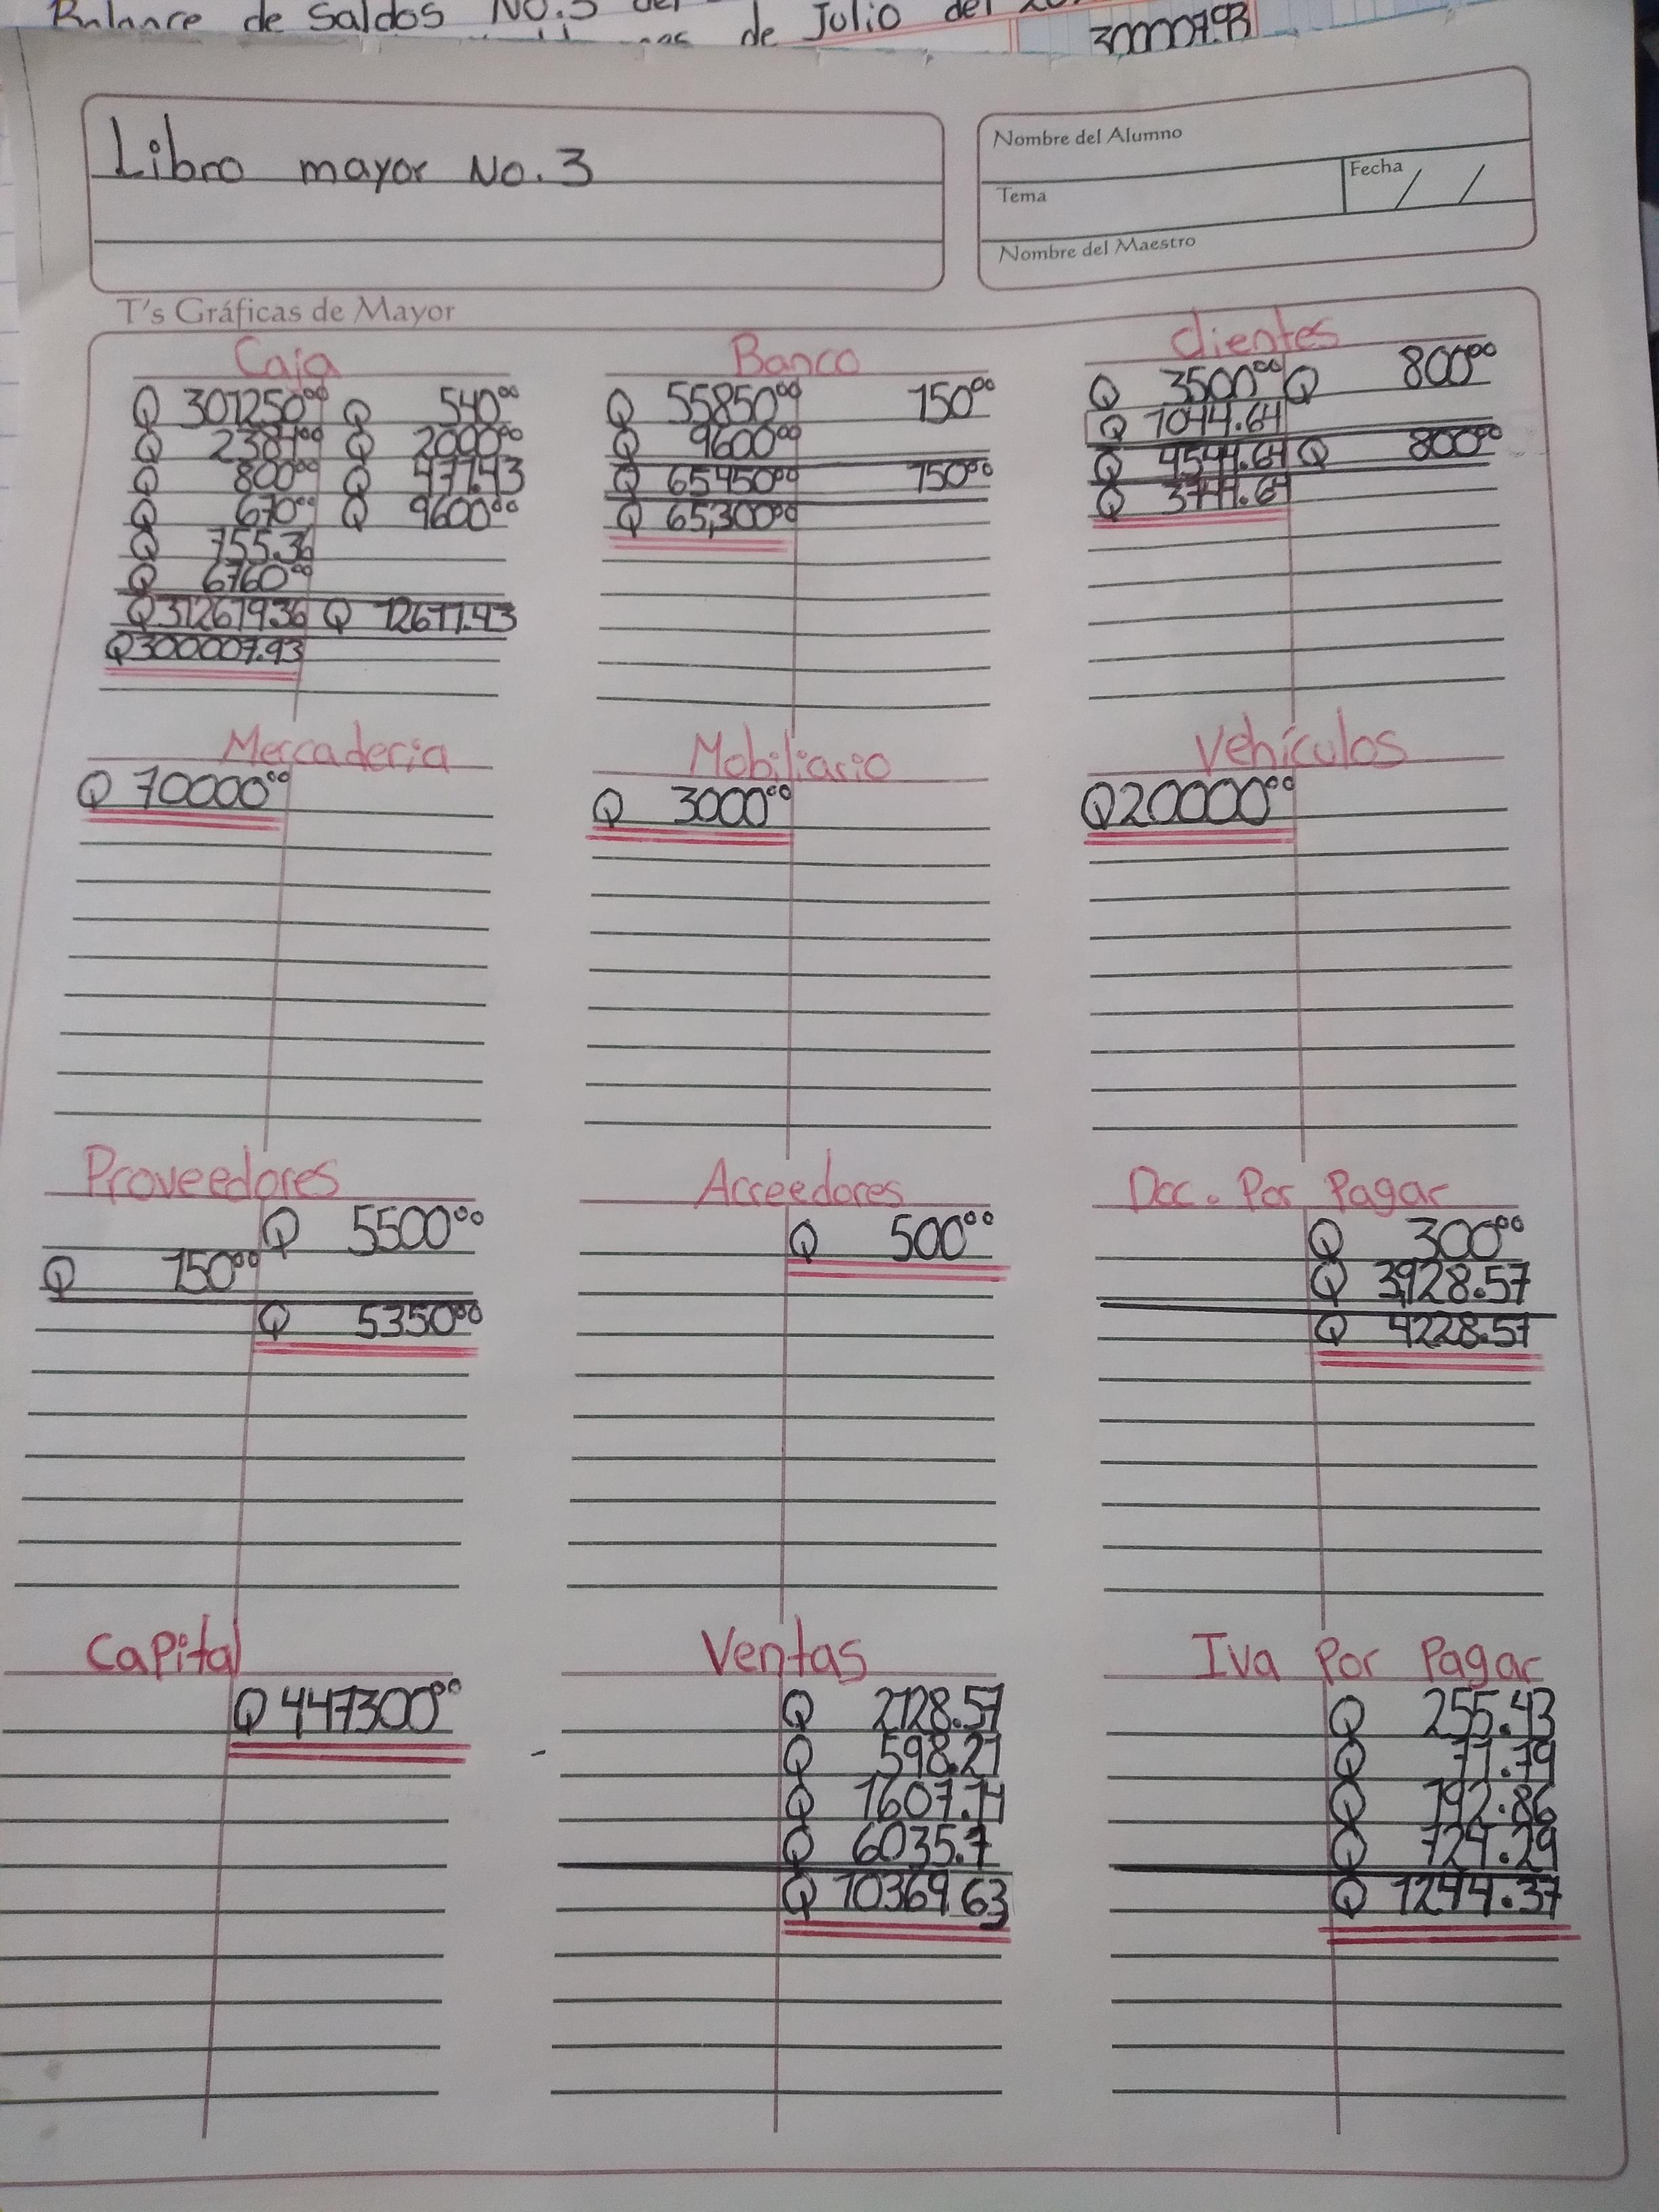 Balance de Saldos No.3 del
de Julio del
300007.93
Libro mayor No. 3
Nombre del Alumno
Tema
Fecha / /
Nombre del Maestro
T's Gráficas de Mayor
Caja
Q 301250.00 Q 540.00
Q 2384.00 Q 2000.00
Q 800.00 Q 471.43
Q 670.00 Q 9600.00
Q 755.36
Q 6760.00
Q 312619.36 Q 12611.43
Q 300007.93
Banco
Q 55850.00 150.00
Q 9600.00
Q 65450.00 150.00
Q 65,300.00
Clientes
Q 3500.00 Q 800.00
Q 1044.64
Q 4544.64 Q 800.00
Q 3744.64
Mercaderia
Q 70000.00
Mobiliario
Q 3000.00
Vehículos
Q 20000.00
Proveedores
Q 5500.00
Q 150.00
Q 5350.00
Acreedores
Q 500.00
Doc. Por Pagar
Q 300.00
Q 3,928.57
Q 4228.57
Capital
Q 447300.00
Ventas
Q 2128.57
Q 598.21
Q 1607.14
Q 6035.7
Q 10369.63
Iva Por Pagar
Q 255.43
Q 71.79
Q 192.86
Q 724.29
Q 1244.37